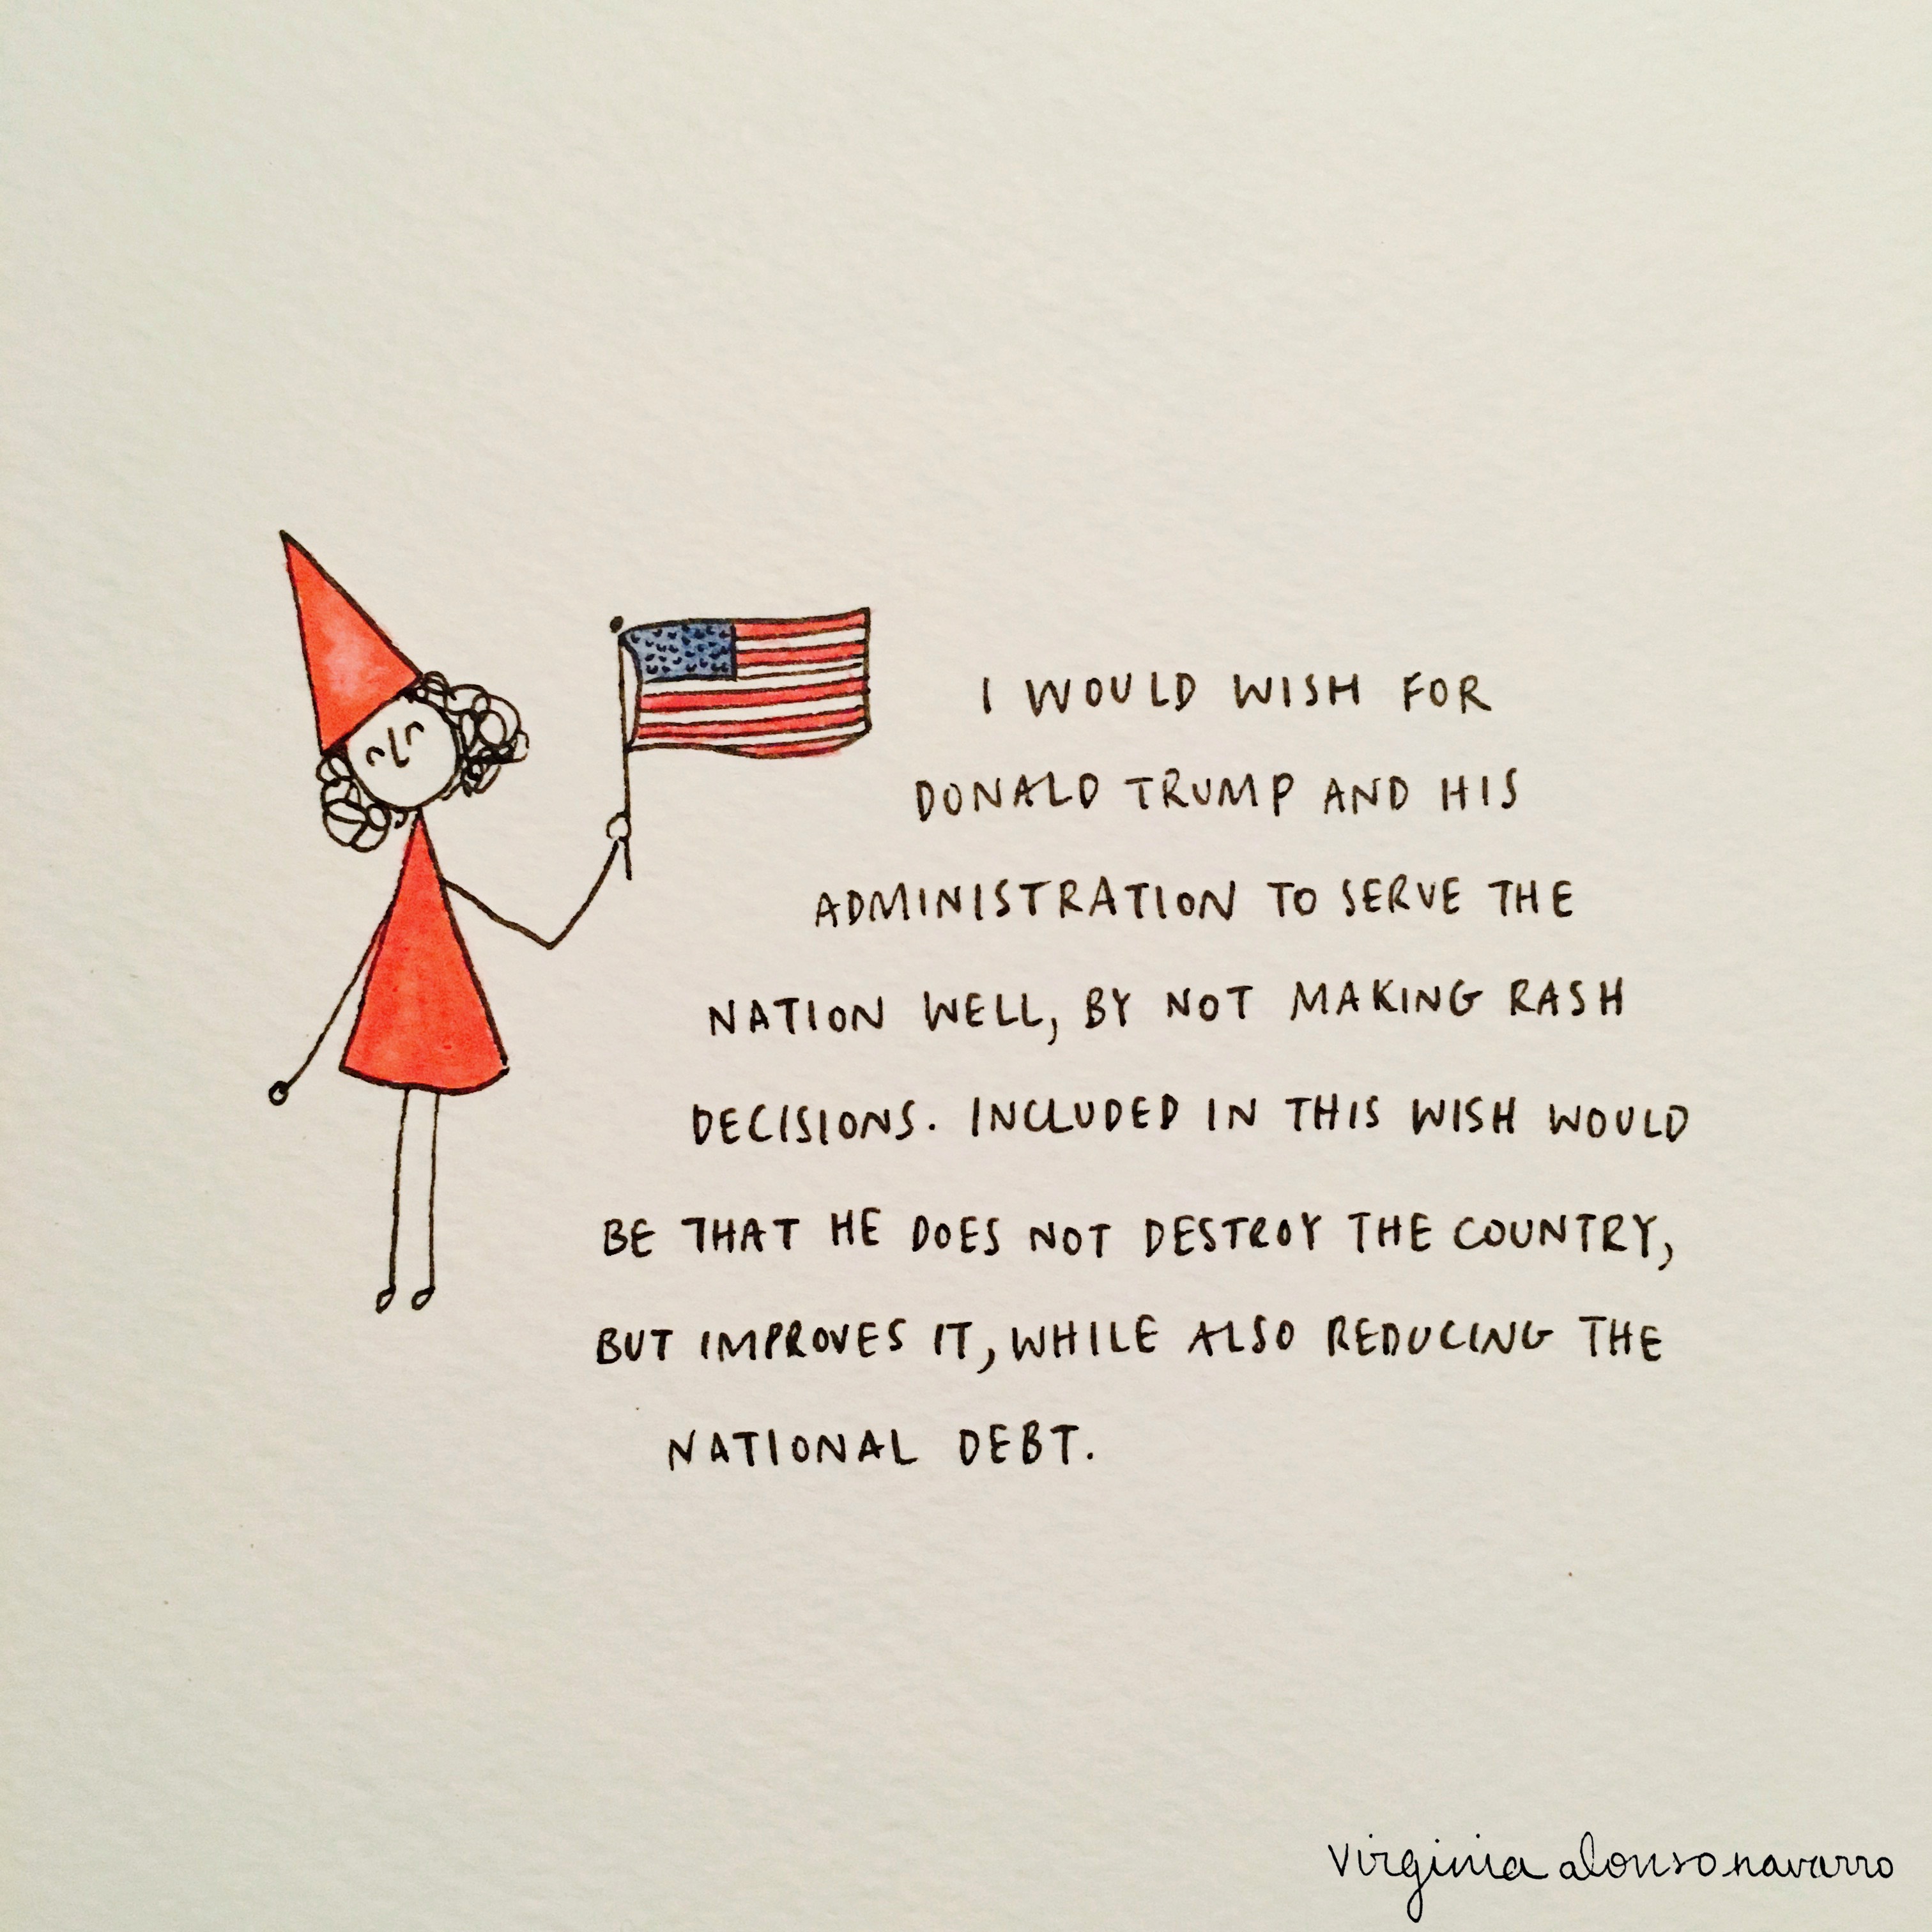 I WOULD WISH FOR
DONALD TRUMP AND HIS
ADMINISTRATION TO SERVE THE
NATION WELL, BY NOT MAKING RASH
DECISIONS. INCLUDED IN THIS WISH WOULD
BE THAT HE DOES NOT DESTROY THE COUNTRY,
BUT IMPROVES IT, WHILE ALSO REDUCING THE
NATIONAL DEBT.
Virginia alonso navarro